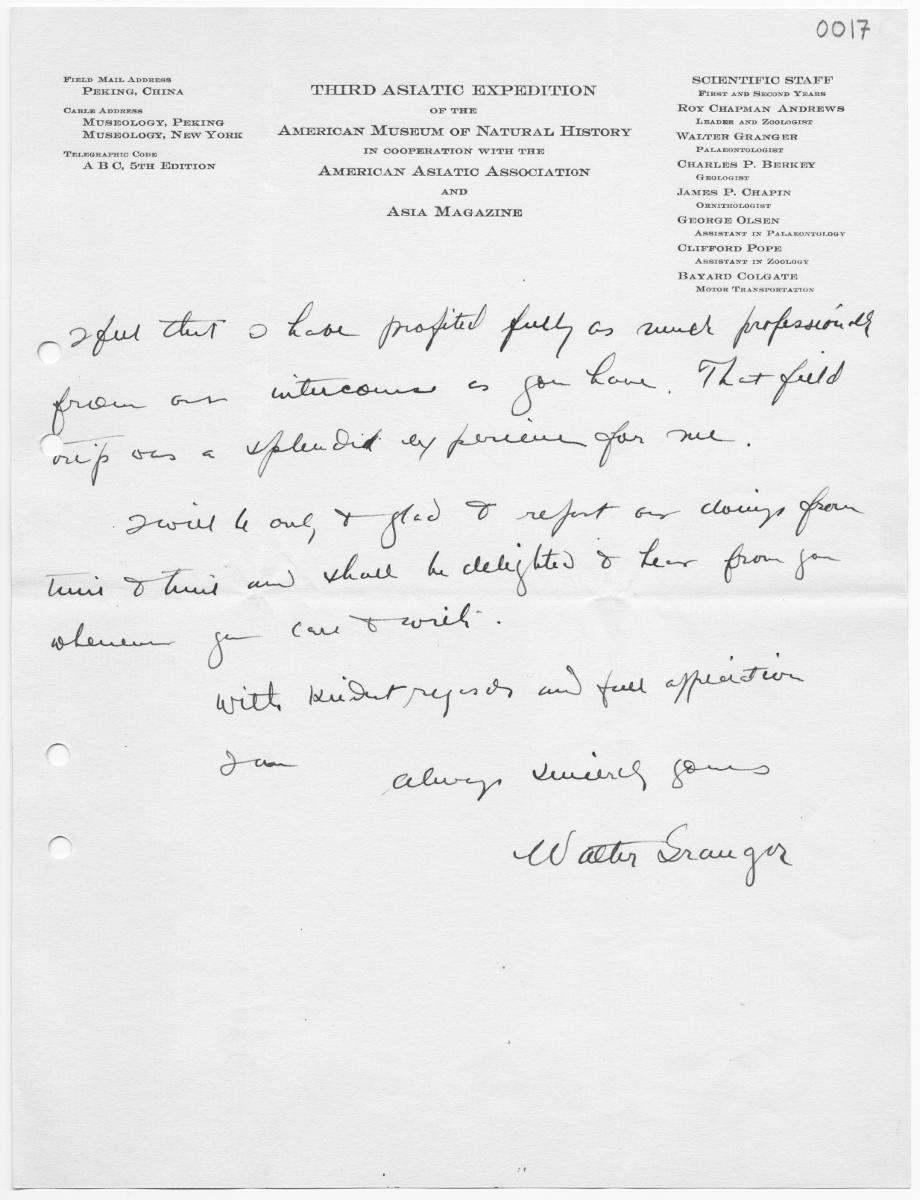 0017
FIELD MAIL ADDRESS
PEKING, CHINA
CABLE ADDRESS
MUSEOLOGY, PEKING
MUSEOLOGY, NEW YORK
TELEGRAPHIC CODE
A B C, 5TH EDITION
THIRD ASIATIC EXPEDITION
OF THE
AMERICAN MUSEUM OF NATURAL HISTORY
IN COOPERATION WITH THE
AMERICAN ASIATIC ASSOCIATION
AND
ASIA MAGAZINE
SCIENTIFIC STAFF
FIRST AND SECOND YEARS
ROY CHAPMAN ANDREWS
LEADER AND ZOOLOGIST
WALTER GRANGER
PALAEONTOLOGIST
CHARLES P. BERKEY
GEOLOGIST
JAMES P. CHAPIN
ORNITHOLOGIST
GEORGE OLSEN
ASSISTANT IN PALAEONTOLOGY
CLIFFORD POPE
ASSISTANT IN ZOOLOGY
BAYARD COLGATE
MOTOR TRANSPORTATION
I feel that I have profited fully as much professionally
from our intercourse as you have. That field
trip was a splendid experience for me.
I will be only to glad to report our doings from
time to time and shall be delighted to hear from you
whenever you care to write.
With kindest regards and full appreciation
I am
always sincerely yours
Walter Granger